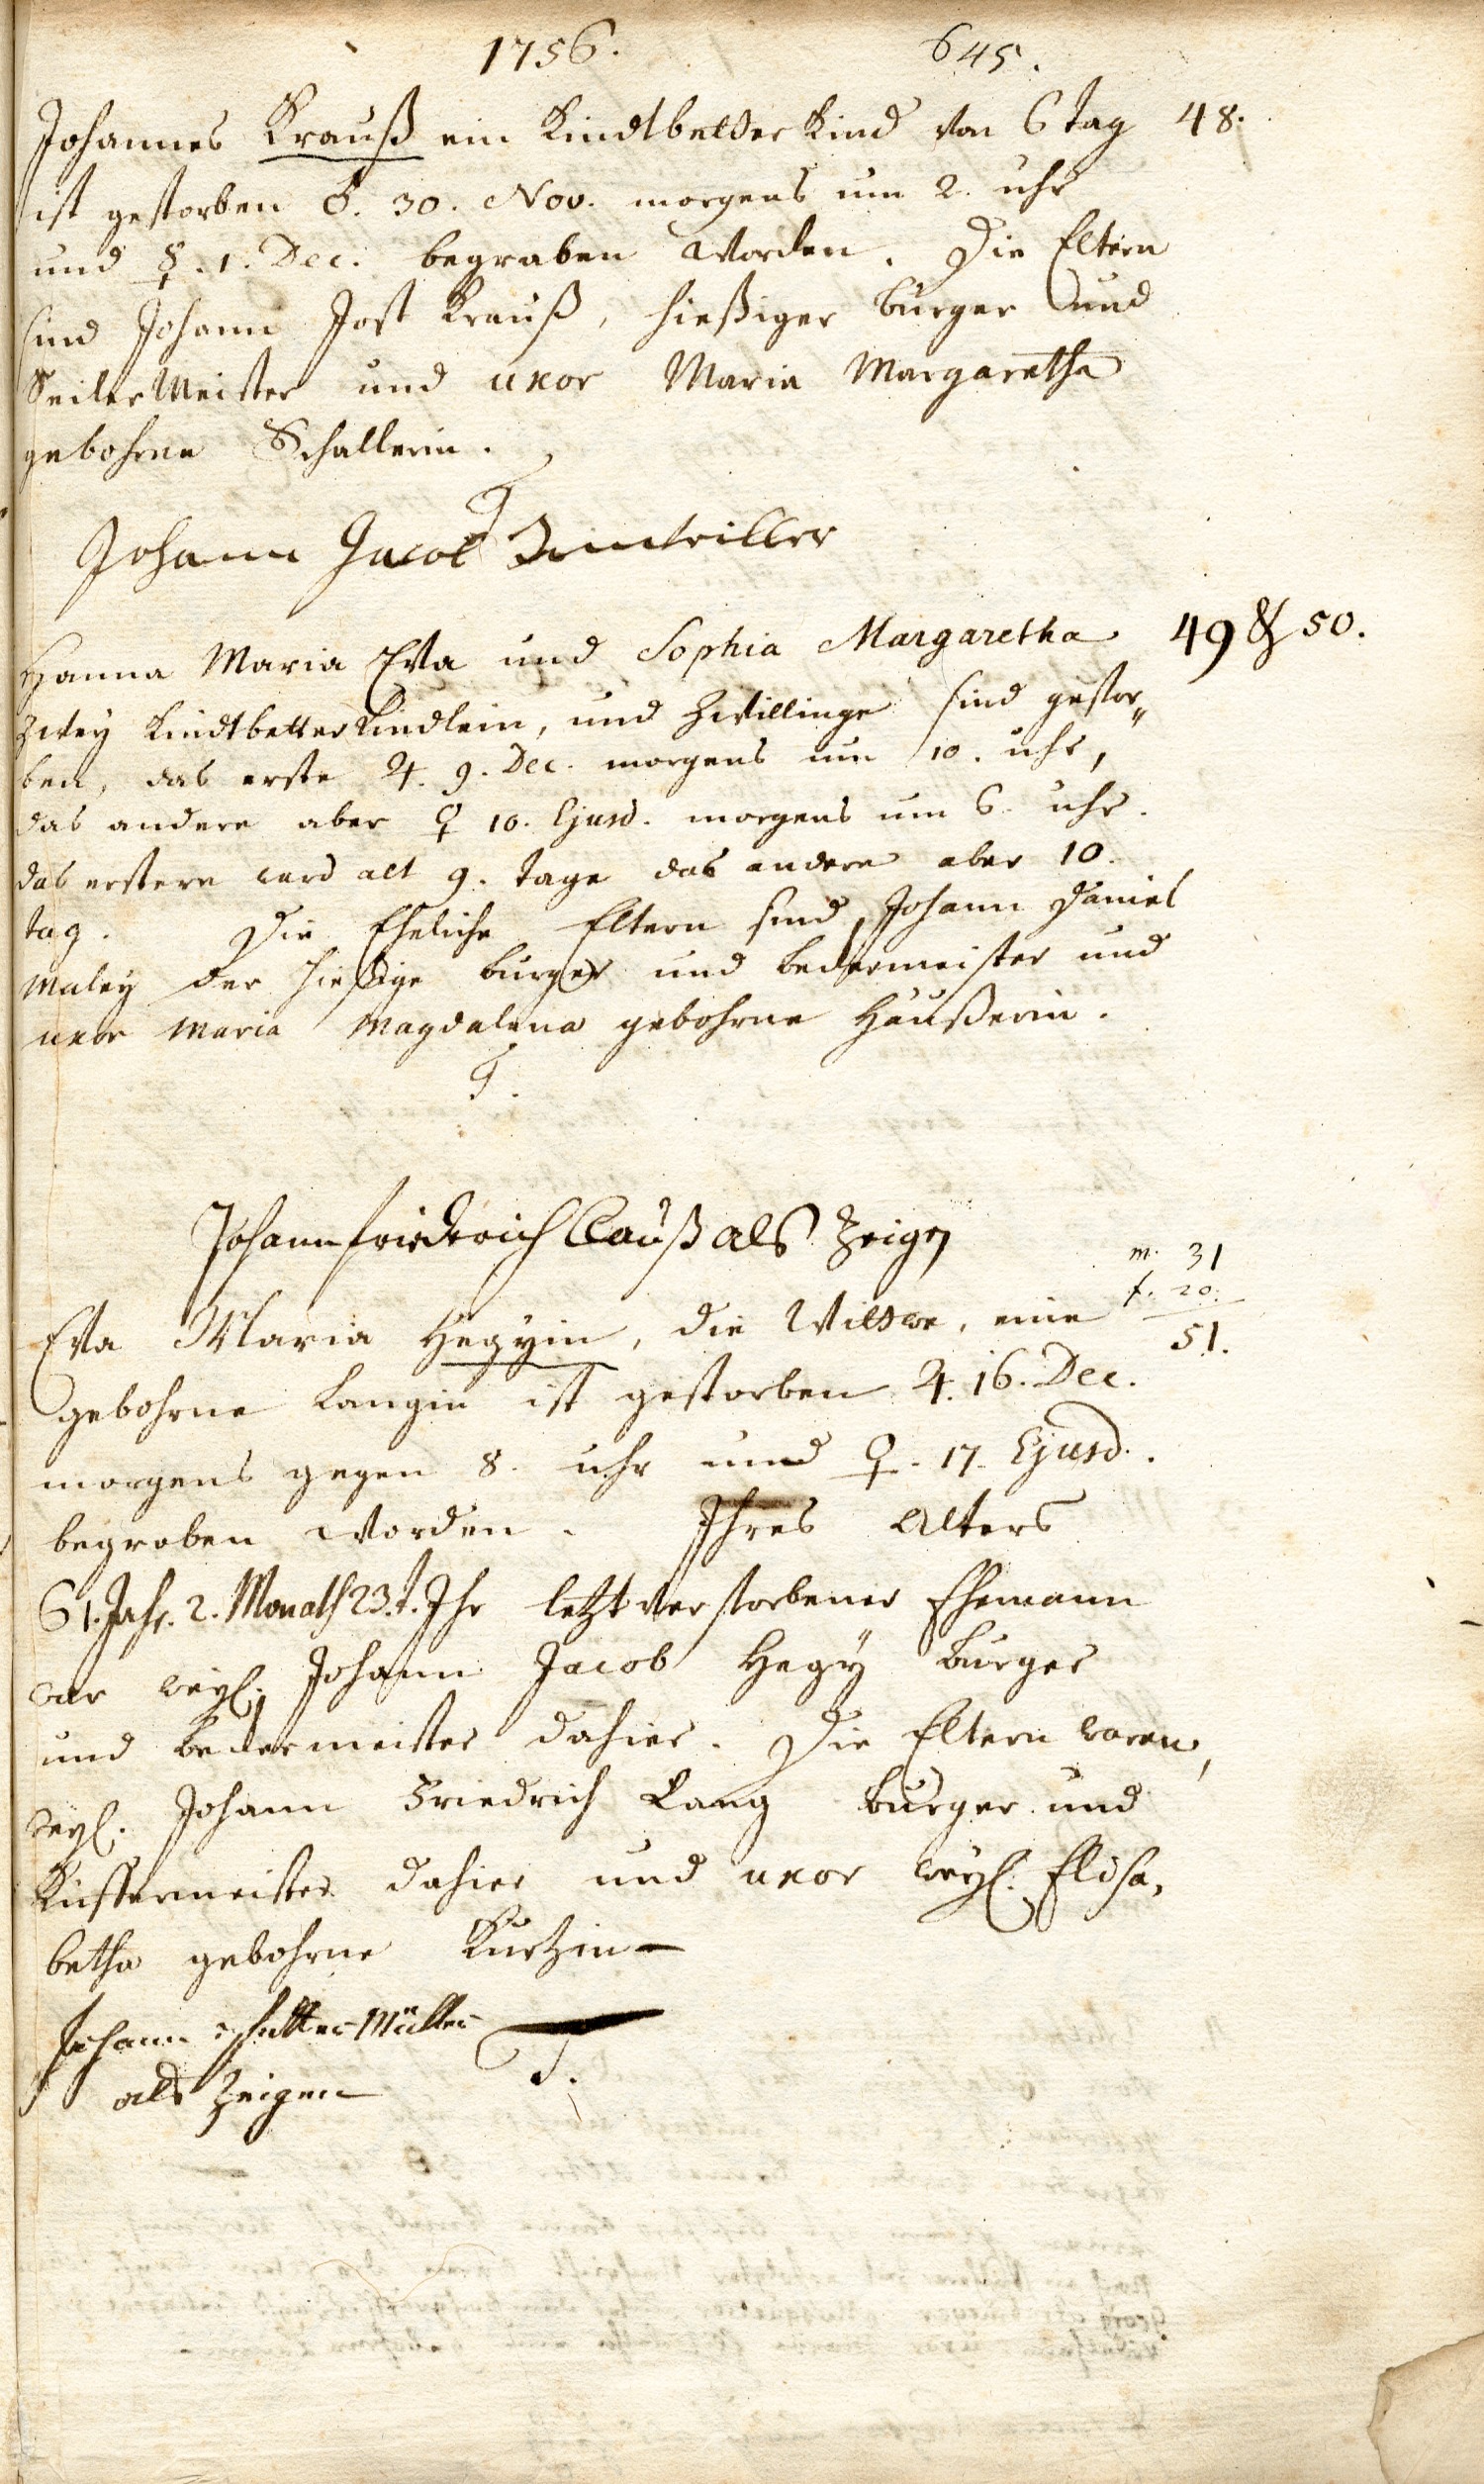 1756. 645.
Johannes Krauß ein Kindtbetter Kind von 6 Tag 48.
ist gestorben ♂. 30. Nov. morgens um 2. uhr
und ☿. 1. Dec. begraben worden. Die Eltern
sind Johann Jost Krauß, hießiger burger und
Seiler Meister und uxor Maria Margaretha
gebohrne Schallerin.
Johann Jacob
Hanna Maria Eva und Sophia Margaretha 49 & 50.
zwey Kindtbetter Kindlein, und Zwillinge sind gestor„
ben, das erste ♃. 9. Dec. morgens um 10. uhr,
das andere aber ♀ 10. Ejusd. morgens um 6. uhr.
das erstere ward alt 9. tage das andere aber 10.
tag. Die Eheliche Eltern sind, Johann Daniel
Maley der hießige burger und bedermeister und
uxor Maria Magdalena gebohrne Häußerin.
T.
Johann friedrich Clauß als Zeigen
m. 31
f. 20.
51.
Eva Maria Hegyin, die Wittwe, eine
gebohrne Langin ist gestorben ♃. 16. Dec.
morgens gegen 8. uhr und ♀. 17. Ejusd.
begraben worden. Ihres Alters
61. Jahr. 2. Monath 23. t. Ihr letzt verstorbener Ehemann
war weyl. Johann Jacob Hegÿ burger
und bedermeister dahier. Die Eltern waren,
weyl. Johann Friedrich Lang burger und
Kieffermeister dahier und uxor weyl. Elisa,
betha gebohrne Kurtzin
Johann Müller
als Zeigen T.